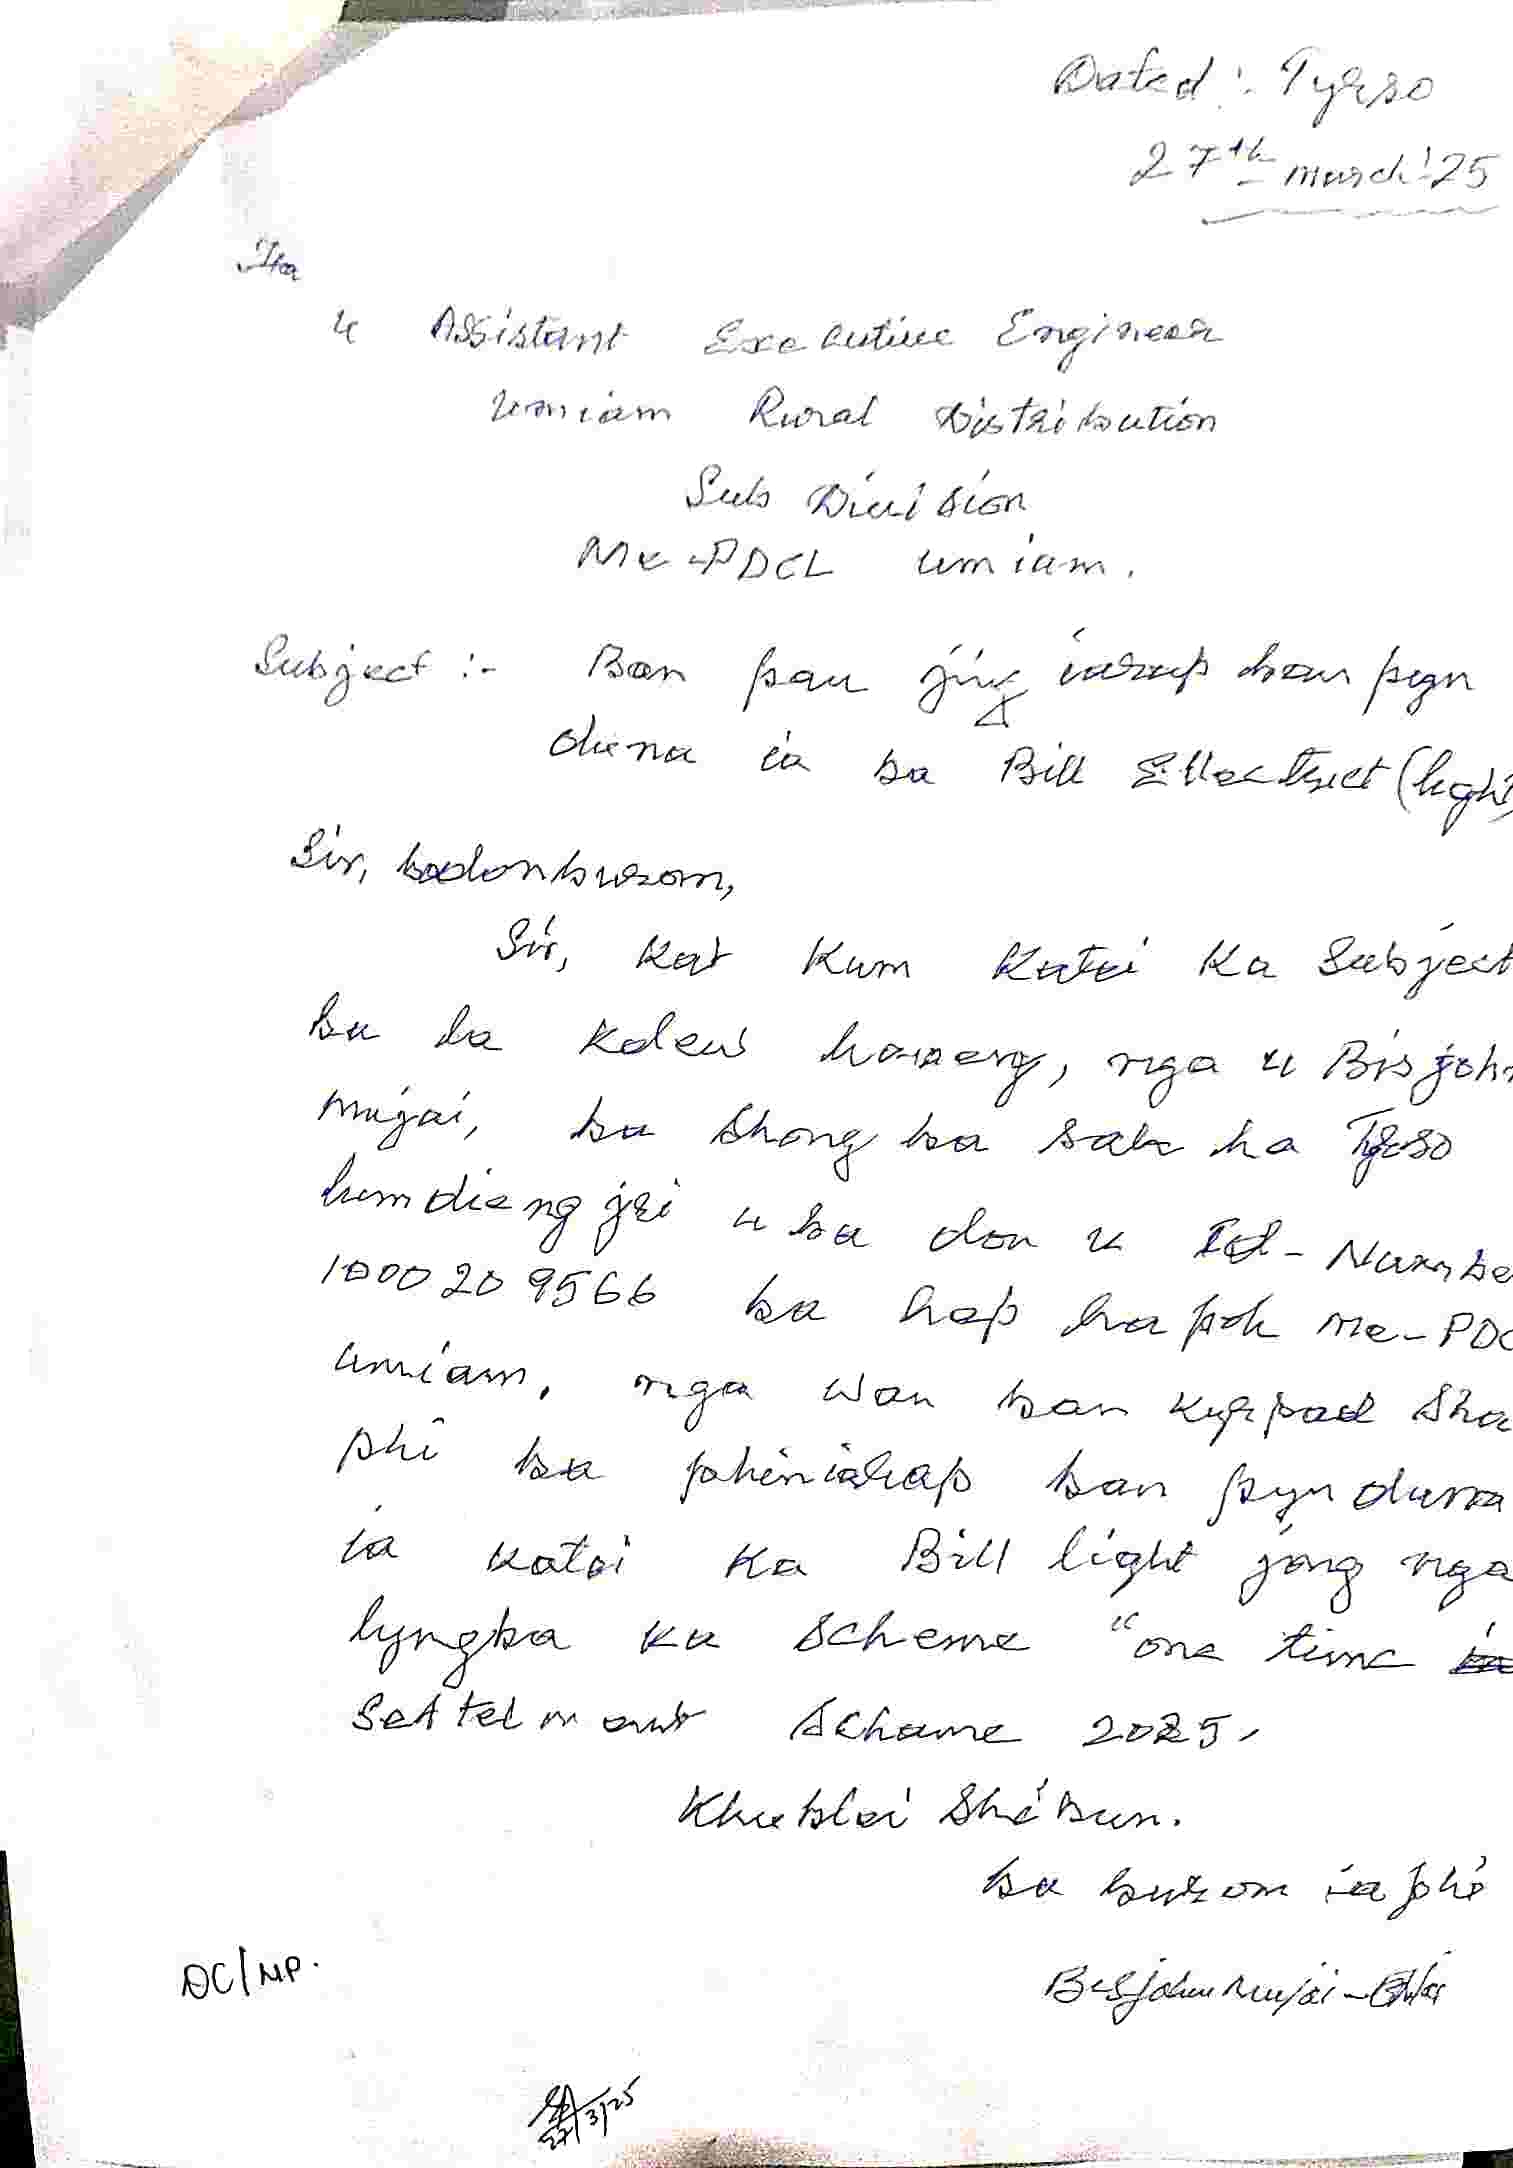 Dated : Tyrso
27th march '25
Ha
u Assistant Executive Engineer
Umiam Rural Distribution
Sub Division
Me-PDCL Umiam.
Subject :- Ban pau jing iarap ban pyn
duna ia ka Bill Ellectrict (light)
Sir, badonburom,
Sir, kat kum katei ka Subject
ba la kdew haneng, nga u Bisjohn
mujai, ba shong ba sah ha Tyrso
lumdiengjri u ba don u Id-Number
1000209566 ba hap hapoh Me-PDC
Umiam, nga wan ban kyrpad sha
phi ba phin iarap ban pynduna
ia katei ka Bill light jong nga
lyngba ka scheme "one time
Settelment schame 2025.
Khublei shibun.
ba burom ia phi
Bisjohn Mujai
DC/MP.
27/3/25